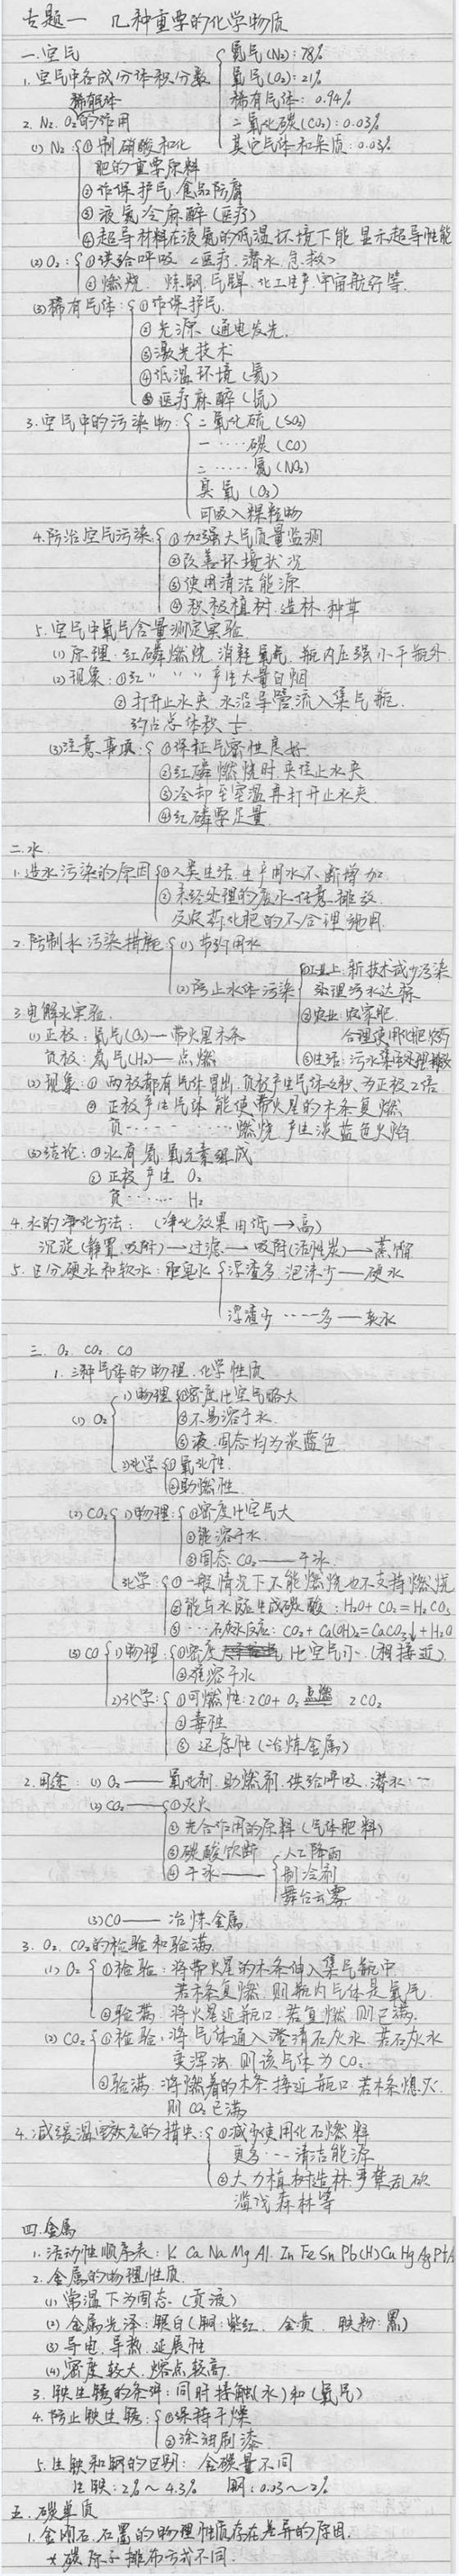 专题一 几种重要的化学物质
一.空气
1.空气中各成分体积分数 { 氮气(N₂):78%
氧气(O₂):21%
稀有气体:0.94%
二氧化碳(CO₂):0.03%
其它气体和杂质:0.03%
稀有气体
2. N₂. O₂的作用
(1) N₂ { ①制硝酸和化肥的重要原料
②作保护气 食品防腐
③液氮冷麻醉(医疗)
④超导材料在液氮的低温环境下能显示超导性能
(2) O₂: { ①供给呼吸 <医疗.潜水.急救>
②燃烧. 炼钢.气焊.化工生产.宇宙航行等.
(3)稀有气体: { ①作保护气.
②光源(通电发光.
③激光技术
④低温环境(氦)
⑤医疗麻醉(氙)
3.空气中的污染物: { 二氧化硫(SO₂)
一····碳(CO)
二·····氮(NO₂)
臭氧(O₃)
可吸入颗粒物
4.防治空气污染: { ①加强大气质量监测
②改善环境状况
③使用清洁能源
④积极植树.造林.种草
5.空气中氧气含量测定实验
(1)原理:红磷燃烧.消耗氧气.瓶内压强小于瓶外.
(2)现象:①红 " " " 产生大量白烟
②打开止水夹.水沿导管流入集气瓶.
约占总体积 1/5
(3)注意事项: { ①保证气密性良好
②红磷燃烧时.夹住止水夹
③冷却至室温再打开止水夹
④红磷要足量.
二.水
1.造水污染的原因 { ①人类生活.生产用水不断增加
②未经处理的废水任意排放.
③农药化肥的不合理施用
2.防制水污染措施 { (1)节约用水
(2)防止水体污染 { ①工业上:新技术减少污染
处理污水达标
②农业:农家肥
合理使用化肥农药
③生活:污水集中处理排放
3.电解水实验.
(1)正极:氧气(O₂)—带火星木条
负极:氢气(H₂)—点燃
(2)现象:①两极都有气体冒出.负极产生气体体积为正极2倍
②正极产生气体能使带火星的木条复燃
负·········燃烧.产生淡蓝色火焰
(3)结论:①水有氢.氧元素组成
②正极产生 O₂
负······· H₂
4.水的净化方法: (净化效果由低→高)
沉淀(静置.吸附)→过滤→吸附(活性炭)→蒸馏
5.区分硬水和软水:肥皂水 { 浮渣多.泡沫少—硬水
浮渣少·····多—软水
三. O₂. CO₂. CO
1.三种气体的物理.化学性质
(1) O₂ { 1)物理 { ①密度比空气略大
②不易溶于水.
③液.固态均为淡蓝色
2)化学 { ①氧化性.
②助燃性.
(2) CO₂ { 1)物理: { ①密度比空气大
②能溶于水
③固态CO₂——干冰.
化学: { ①一般情况下不能燃烧也不支持燃烧
②能与水反应生成碳酸:H₂O+CO₂=H₂CO₃
③····石灰水反应:CO₂+Ca(OH)₂=CaCO₃↓+H₂O
(3) CO { 1)物理: { ①密度比空气小.(相接近)
②难溶于水
2)化学: { ①可燃性:2CO+O₂ 点燃 2CO₂
②毒性
③还原性(冶炼金属)
2.用途: (1) O₂——氧化剂.助燃剂.供给呼吸.潜水····
(2) CO₂—— { ①灭火
②光合作用的原料(气体肥料)
③碳酸饮料
④干冰—— { 人工降雨
制冷剂
舞台云雾
(3) CO——冶炼金属.
3. O₂. CO₂的检验和验满.
(1) O₂ { ①检验:将带火星的木条伸入集气瓶中.
若木条复燃.则瓶内气体是氧气.
②验满:将火星近瓶口.若复燃.则已满.
(2) CO₂ { ①检验:将气体通入澄清石灰水.若石灰水
变浑浊.则该气体为CO₂.
②验满:将燃着的木条接近瓶口.若木条熄灭.
则CO₂已满
4.减缓温室效应的措失: { ①减少使用化石燃料
更多···清洁能源
②大力植树造林.严禁乱砍
滥伐森林等
四.金属
1.活动性顺序表: K Ca Na Mg Al. Zn Fe Sn Pb (H) Cu Hg Ag Pt A
2.金属的物理性质.
(1)常温下为固态.(贡液)
(2)金属光泽:银白(铜:紫红. 金黄. 铁粉:黑)
(3)导电.导热.延展性
(4)密度较大.熔点较高.
3.铁生锈的条件:同时接触(水)和(氧气)
4.防止铁生锈: { ①保持干燥
②涂油刷漆.
5.生铁和钢的区别: 含碳量不同
生铁:2%~4.3% 钢:0.03~2%
五.碳单质
1.金刚石.石墨的物理性质存在差异的原因.
碳原子排布方式不同.